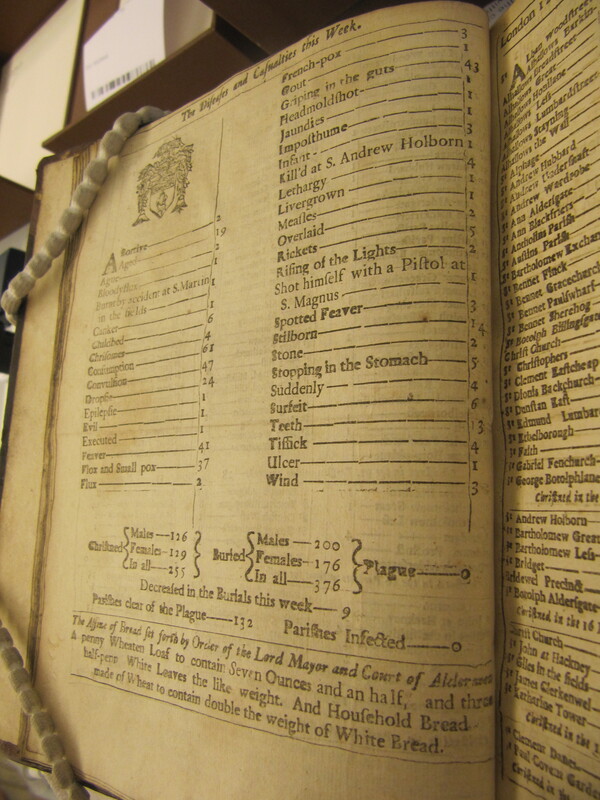 The Diseases and Casualties this Week.
Abortive 2
Aged 19
Ague 2
Bloodyflux 1
Burnt by accident at S. Martin
in the fields 1
Canker 1
Childbed 6
Chrisomes 4
Consumption 61
Convulsion 47
Dropsie 24
Epilepsie 1
Evil 1
Executed 1
Feaver 41
Flox and Small pox 37
Flux 2
French-pox 3
Gout 1
Griping in the guts 43
Headmoldshot 1
Jaundies
Imposthume 3
Infant
Kill'd at S. Andrew Holborn 1
Lethargy 1
Livergrown 4
Measles 1
Overlaid 2
Rickets 5
Rising of the Lights 2
Shot himself with a Pistol at
S. Magnus 1
Spotted Feaver 3
Stilborn 14
Stone 2
Stopping in the Stomach 5
Suddenly 4
Surfeit 6
Teeth 13
Tissick 4
Ulcer 1
Wind 3
Christned
Males—126
Females—129
In all—255
Buried
Males—200
Females—176
In all—376
Plague—0
Decreased in the Burials this week—9
Parishes clear of the Plague—132 Parishes Infected—0
The Assize of Bread set forth by Order of the Lord Mayor and Court of Aldermen
A penny Wheaten Loaf to contain Seven Ounces and an half, and three
half-penny White Loaves the like weight. And Houshold Bread
made of Wheat to contain double the weight of White Bread.
London
Alban Woodstreet
Alhallows Barkin
Alhallows Breadstreet
Alhallows Great
Alhallows Honilane
Alhallows Less
Alhallows Lumbardstreet
Alhallows Stayning
Alhallows the Wall
Alphage
Andrew Hubbard
Andrew Undershaft
Andrew Wardrobe
Ann Aldersgate
Ann Blackfriers
Antholins Parish
Austins Parish
Bartholomew Exchan
Bennet Finck
Bennet Gracechurch
Bennet Paulswharf
Bennet Sherehog
Botolph Billingsgate
Christ Church
Christophers
Clement Eastcheap
Dionis Backchurch
Dunstan East
Edmund Lumbar
Ethelborough
Faith
Gabriel Fenchurch
George Botolphlane
Christned in the
Andrew Holborn
Bartholomew Great
Bartholomew Less
Bridget
Bridewel Precinct
Botolph Aldersgate
Christned in the 16
Christ Church
John at Hackney
Giles in the fields
James Clerkenwel
Katharine Tower
Christned in the
Clement Danes
Paul Covent Garden
Christned in the